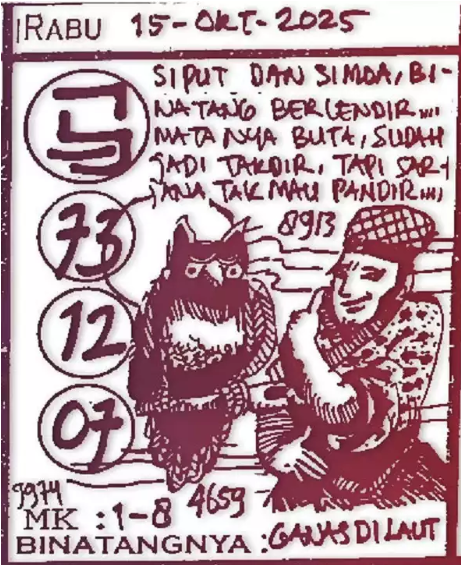 RABU 15-OKT-2025
SIPUT DAN SIMOA, BI-
NATANG BERLENDIR....
MATA NYA BUTA, SUDAH
JADI TAKDIR, TAPI SAR-
JANA TAK MAU PANDIR....
8913
73
12
07
3974
4659
MK : 1-8
BINATANGNYA : GANAS DI LAUT